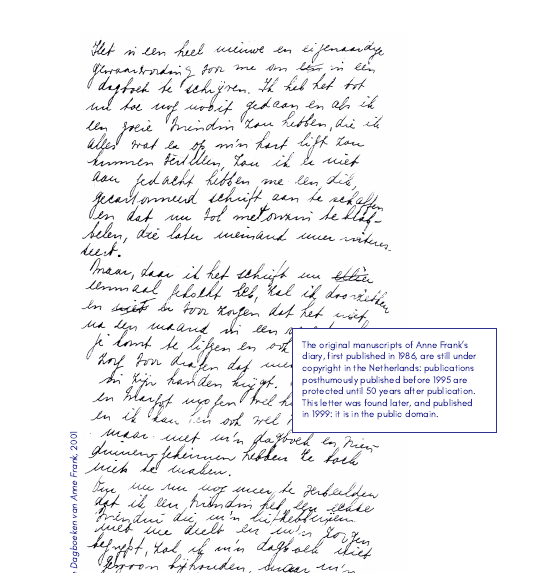 Het is een heel nieuwe en eigenaardige
gewaarwording voor me om een in een
dagboek te schrijven. Ik heb het tot
nu toe nog nooit gedaan en als ik
een goeie vriendin zou hebben, die ik
alles wat er op m'n hart ligt zou
kunnen vertellen, zou ik er niet
aan gedacht hebben me een dik,
gecartonneerd schrift aan te schaffen
en dat nu vol met onzin te
die later niemand meer
Maar, daar ik het schrift nu
eenmaal gekocht heb, zal ik doorzetten
en er voor zorgen dat het niet
na een maand in een
je komt te liggen en ook
zorg voor dragen dat
in zijn handen krijgt.
en Margot mogen wel
en ik kan ook wel
maar met m'n dagboek en
geheimen hebben ze toch
niets te maken.
Om me nu nog meer te verbeelden
dat ik een vriendin heb, een echte
vriendin die m'n liefhebberijen
met me deelt en m'n zorgen
begrijpt, zal ik m'n dagboek niet
gewoon bijhouden, maar m'n
The original manuscripts of Anne Frank's
diary, first published in 1986, are still under
copyright in the Netherlands: publications
posthumously published before 1995 are
protected until 50 years after publication.
This letter was found later, and published
in 1999: it is in the public domain.
Dagboeken van Anne Frank, 2001